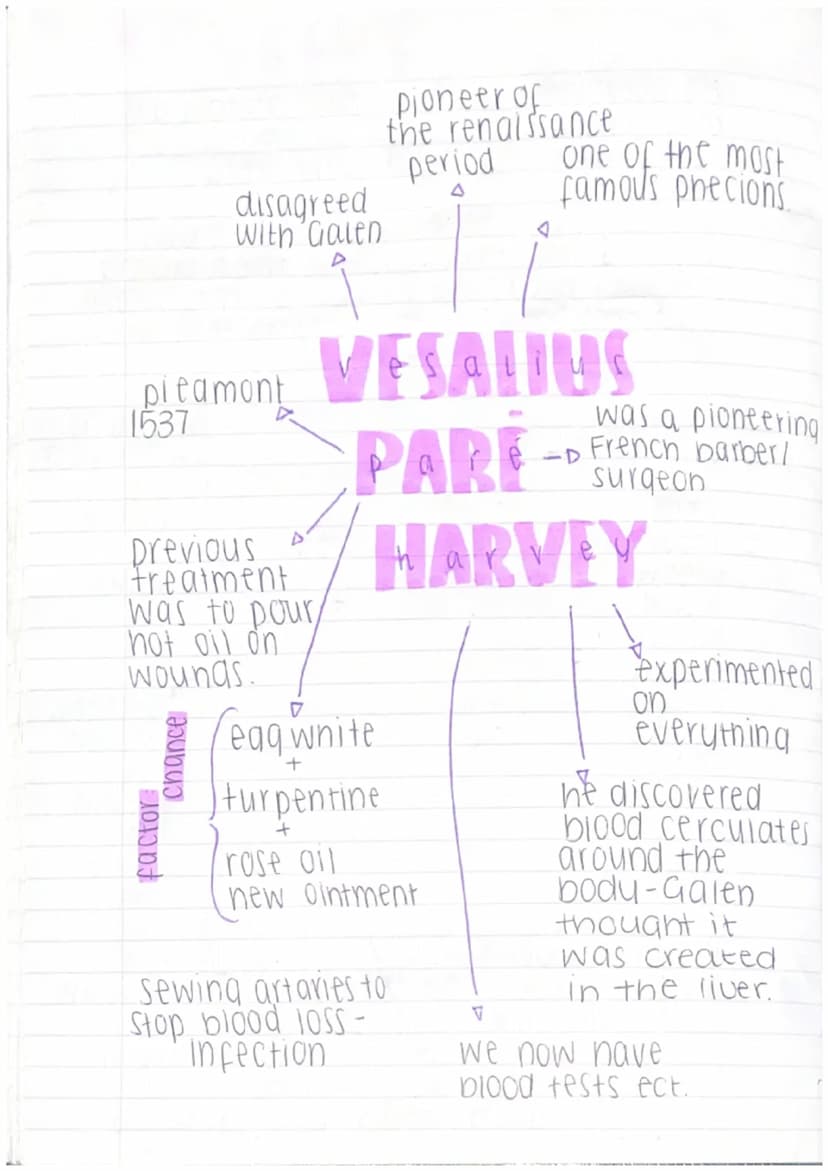 pioneer of
the renaissance
period
one of the most
famous phecions.
disagreed
with Galen
VESALIUS
vesalius
piedmont
1537
PARÉ
paré
was a pioneering
French barber/
surgeon
HARVEY
harvey
previous
treatment
was to pour
hot oil on
wounds.
experimented
on
everything
factor chance
egg white
+
turpentine
+
rose oil
new ointment
he discovered
blood cerculates
around the
body-Galen
thought it
was created
in the liver.
sewing artaries to
stop blood loss-
infection
we now have
blood tests ect.